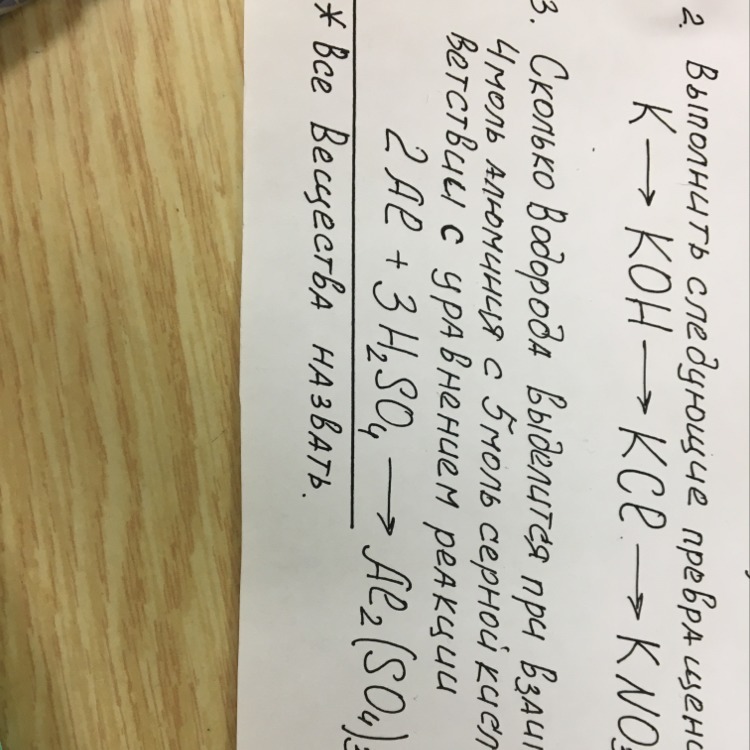 2. Выполнить следующие превращени
K → KOH → KCl → KNO₃
3. Сколько водорода выделится при взаи
4 моль алюминия с 5 моль серной кисл
ветствии с уравнением реакции
2Al + 3H₂SO₄ → Al₂(SO₄)₃
* Все вещества назвать.